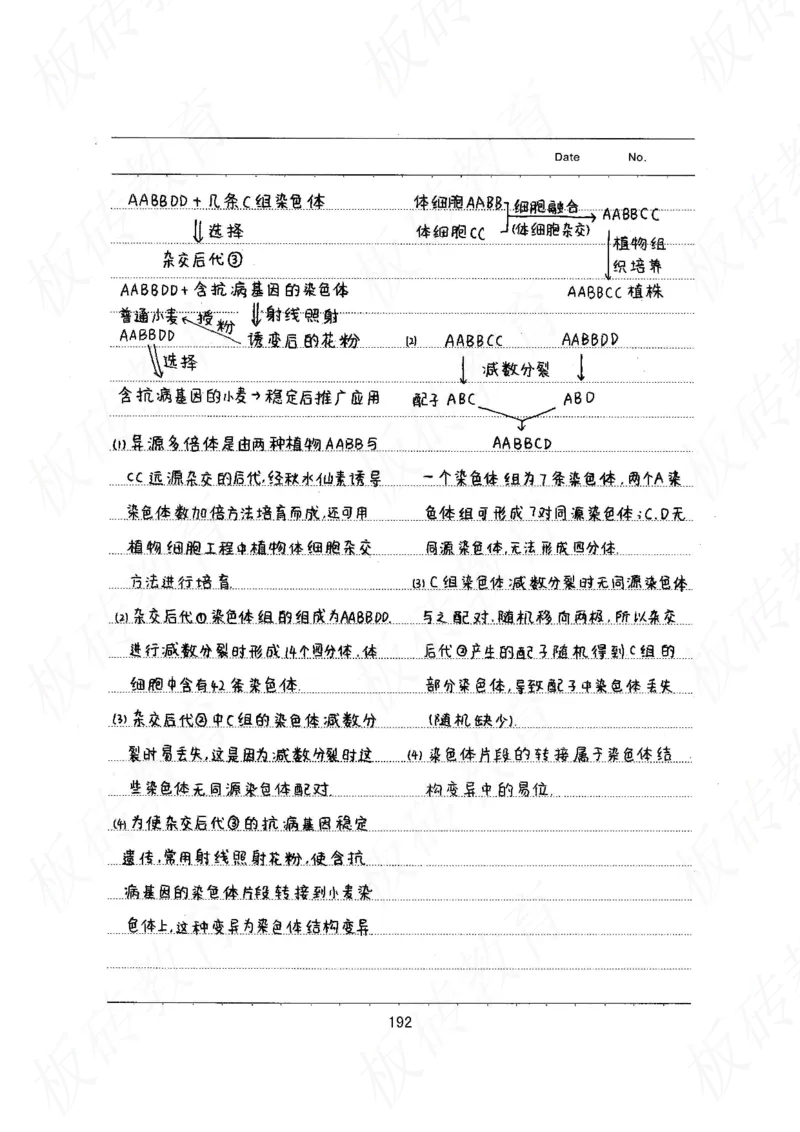 Date No.
AABBDD + 几条C组染色体
⇓选择
杂交后代③
AABBDD + 含抗病基因的染色体
普通小麦 授粉 ⇓射线照射
AABBDD 诱变后的花粉
选择
含抗病基因的小麦→稳定后推广应用
(1) 异源多倍体是由两种植物AABB与
CC远源杂交的后代,经秋水仙素诱导
染色体数加倍方法培育而成,还可用
植物细胞工程中植物体细胞杂交
方法进行培育.
(2) 杂交后代①染色体组的组成为AABBDD.
进行减数分裂时形成14个四分体,体
细胞中含有42条染色体.
(3) 杂交后代②中C组的染色体减数分
裂时易丢失,这是因为减数分裂时这
些染色体无同源染色体配对.
(4) 为使杂交后代③的抗病基因稳定
遗传,常用射线照射花粉,使含抗
病基因的染色体片段转接到小麦染
色体上,这种变异为染色体结构变异
体细胞AABB 细胞融合
体细胞CC (体细胞杂交) → AABBCC
植物组
织培养
AABBCC植株
(2) AABBCC AABBDD
↓ 减数分裂 ↓
配子 ABC ABD
AABBCD
一个染色体组为7条染色体,两个A染
色体组可形成7对同源染色体;C.D无
同源染色体,无法形成四分体.
(3) C组染色体减数分裂时无同源染色体
与之配对.随机移向两极,所以杂交
后代②产生的配子随机得到C组的
部分染色体,导致配子中染色体丢失
(随机缺少).
(4) 染色体片段的转接属于染色体结
构变异中的易位.
192
板砖教育